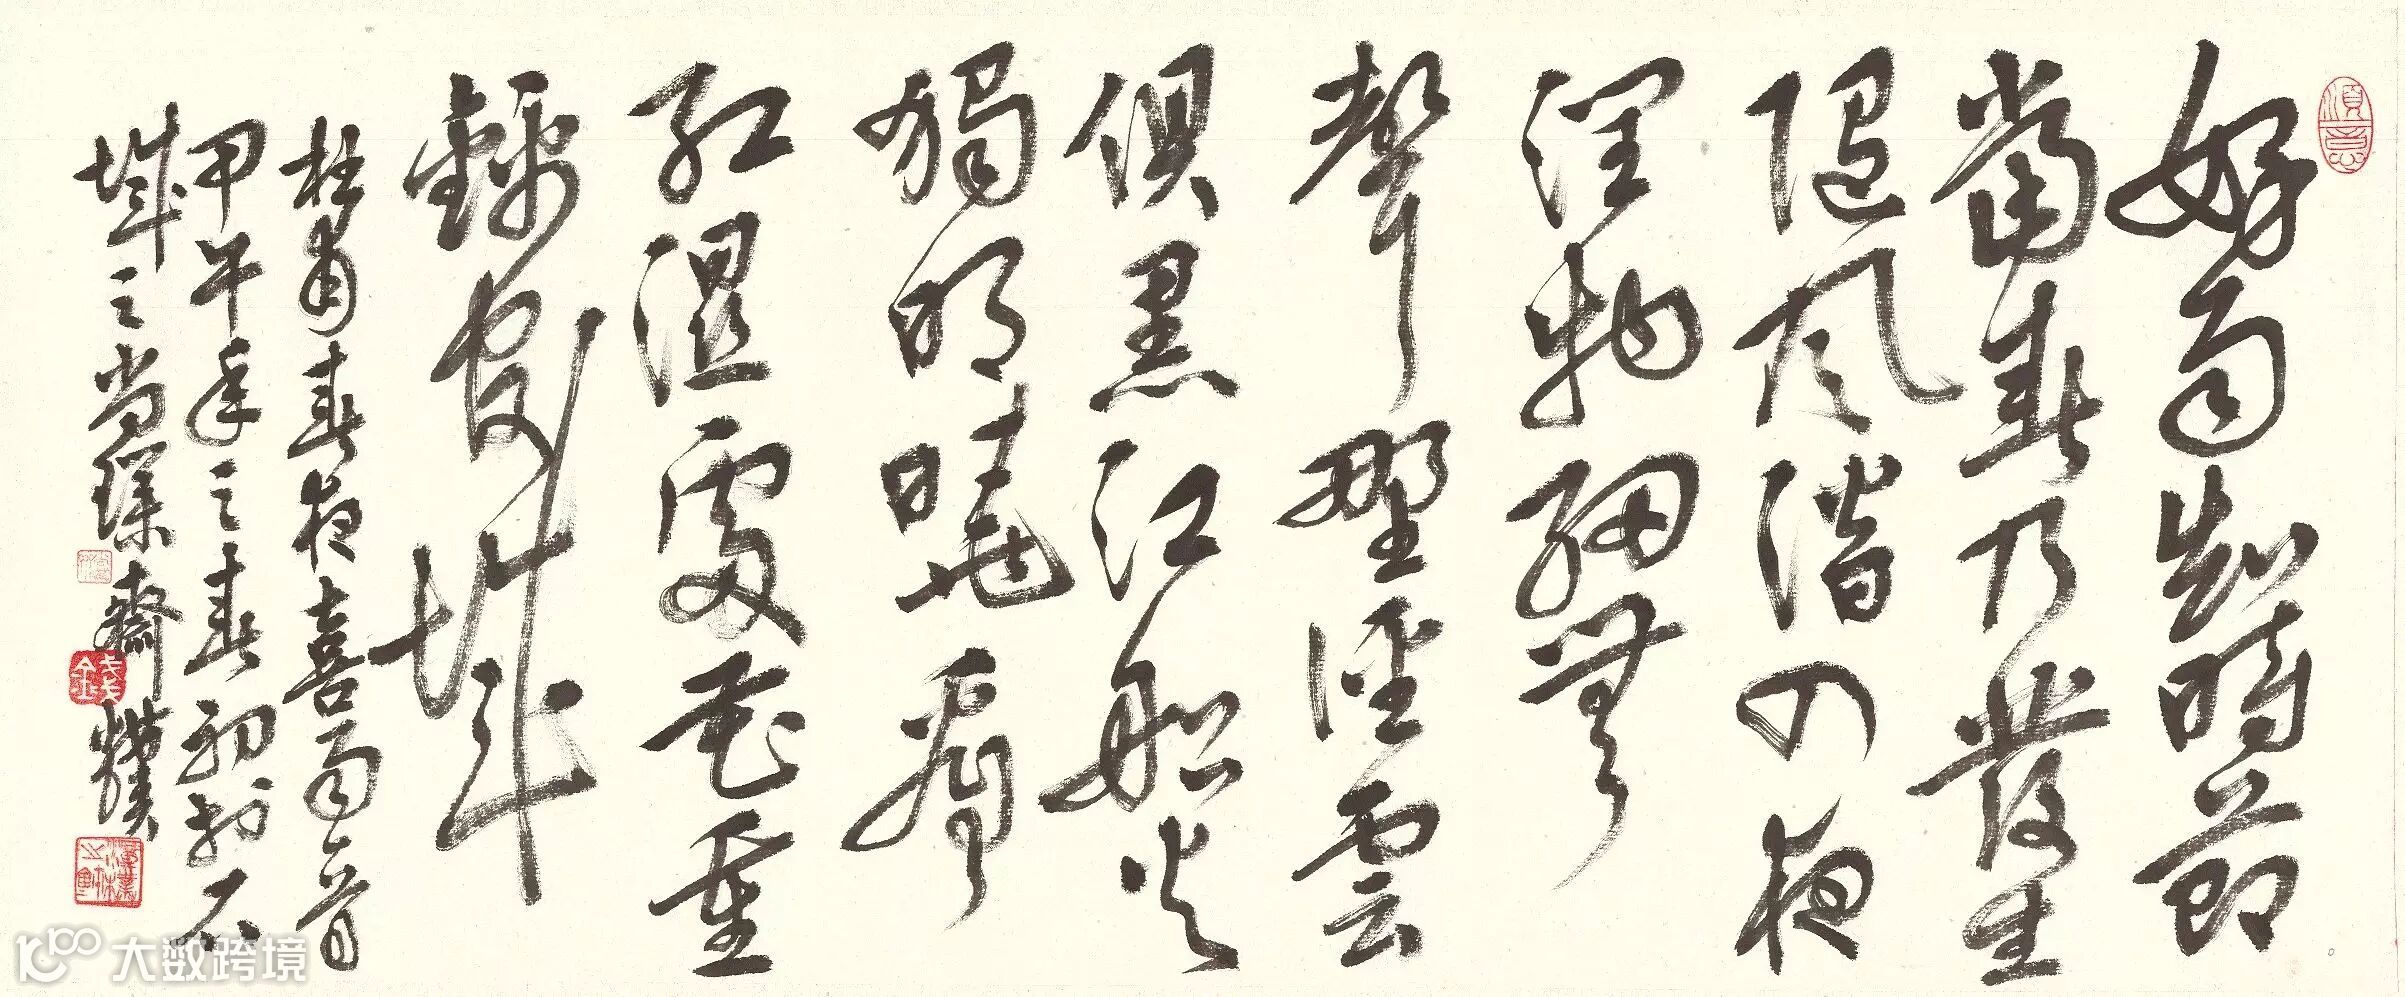 好雨知時節
當春乃發生
隨風潛入夜
潤物細無
聲野徑雲
俱黑江船火
獨明曉看
紅濕處花重
錦官城
杜甫春夜喜雨一首
甲午年之春初於石
城之尚璞齋
錢
大数跨境